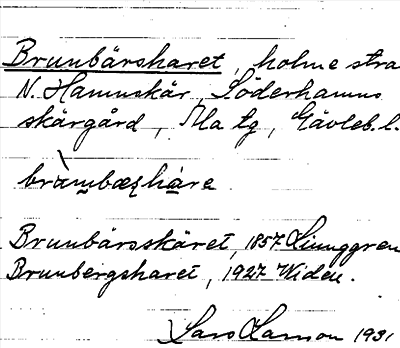 Brunbärsharet, holme stra
N. Hamnskär, Söderhamns
skärgård, Ala tg, Gävleb. l.
bru̱mbæʂhạre
Brunbärsskäret, 1857 Ljunggren
Brunbergsharet, 1927 Widen.
Lars Larsson 1931